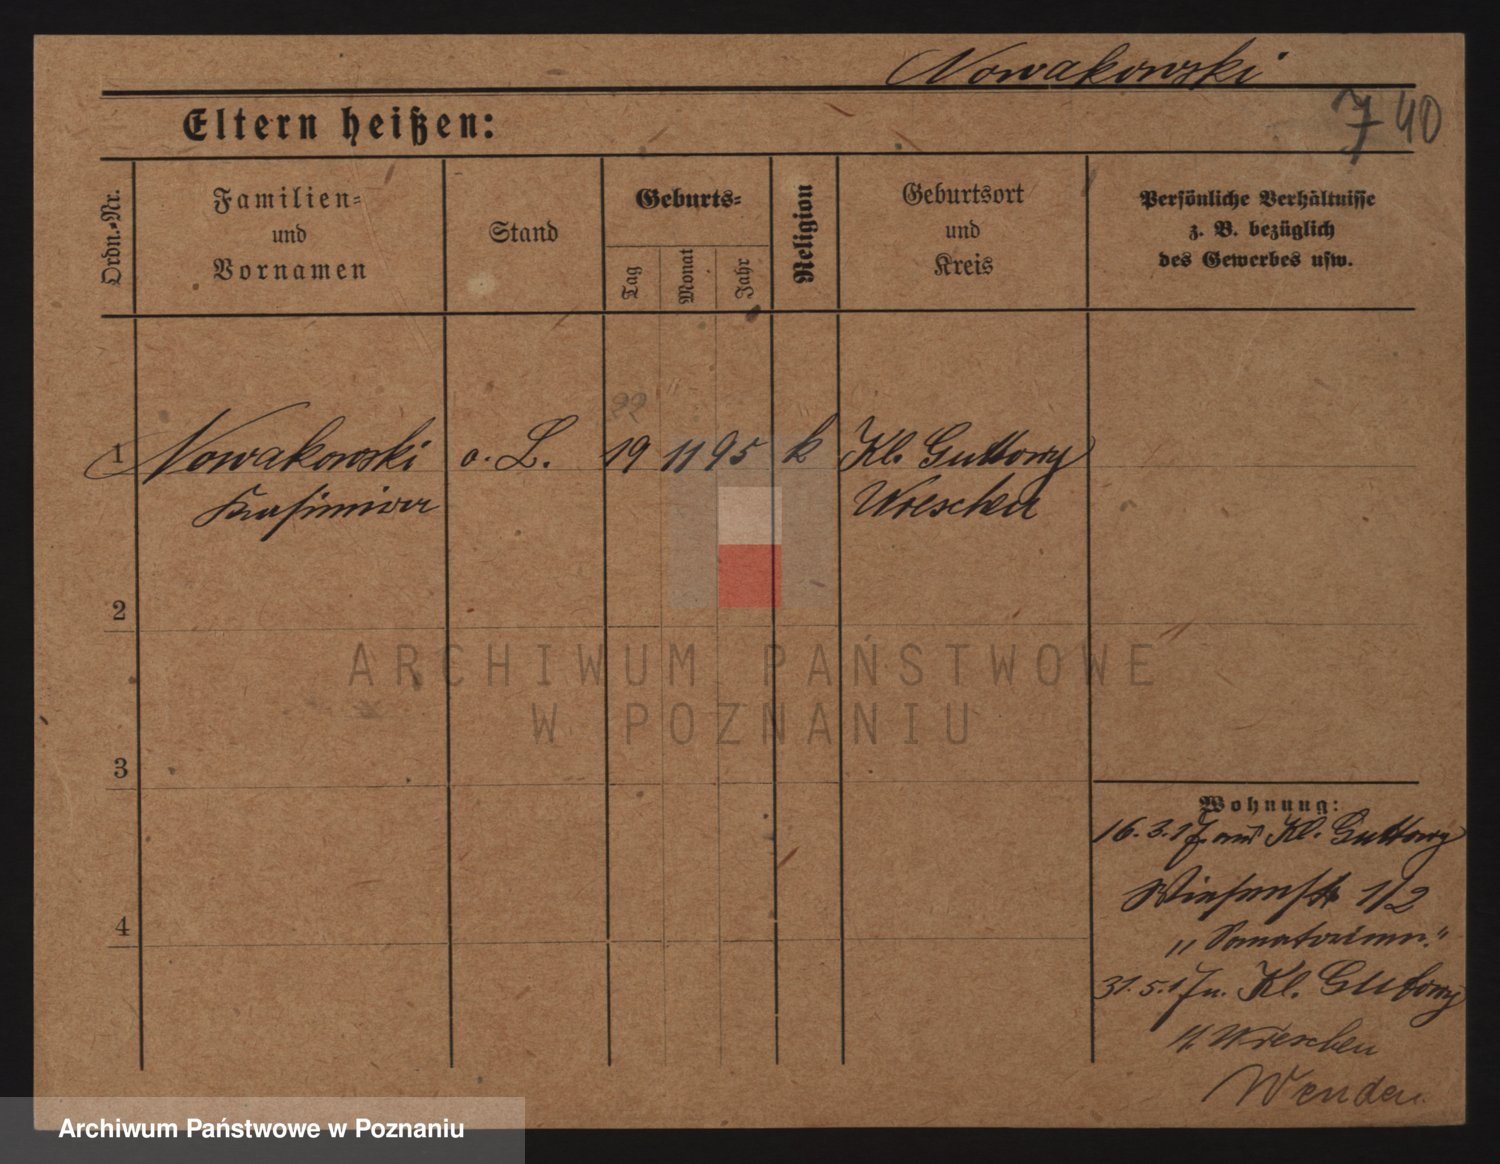 Nowakowski
7 40
Eltern heißen:
Ordn.-Nr.
Familien-
und
Vornamen
Stand
Geburts-
Tag
Monat
Jahr
Religion
Geburtsort
und
Kreis
Persönliche Verhältnisse
z. B. bezüglich
des Gewerbes usw.
22
1 Nowakowski o. L. 19 11 95 k Kl. Guttowy
Kasimira Wreschen
2
3
4
Wohnung:
16.3.17. aus Kl. Guttowy
Wiesenstr 1/2
"Sanatorium."
31.5.17 n. Kl. Guttowy
Wreschen
Wenden
ARCHIWUM PAŃSTWOWE
W POZNANIU
Archiwum Państwowe w Poznaniu